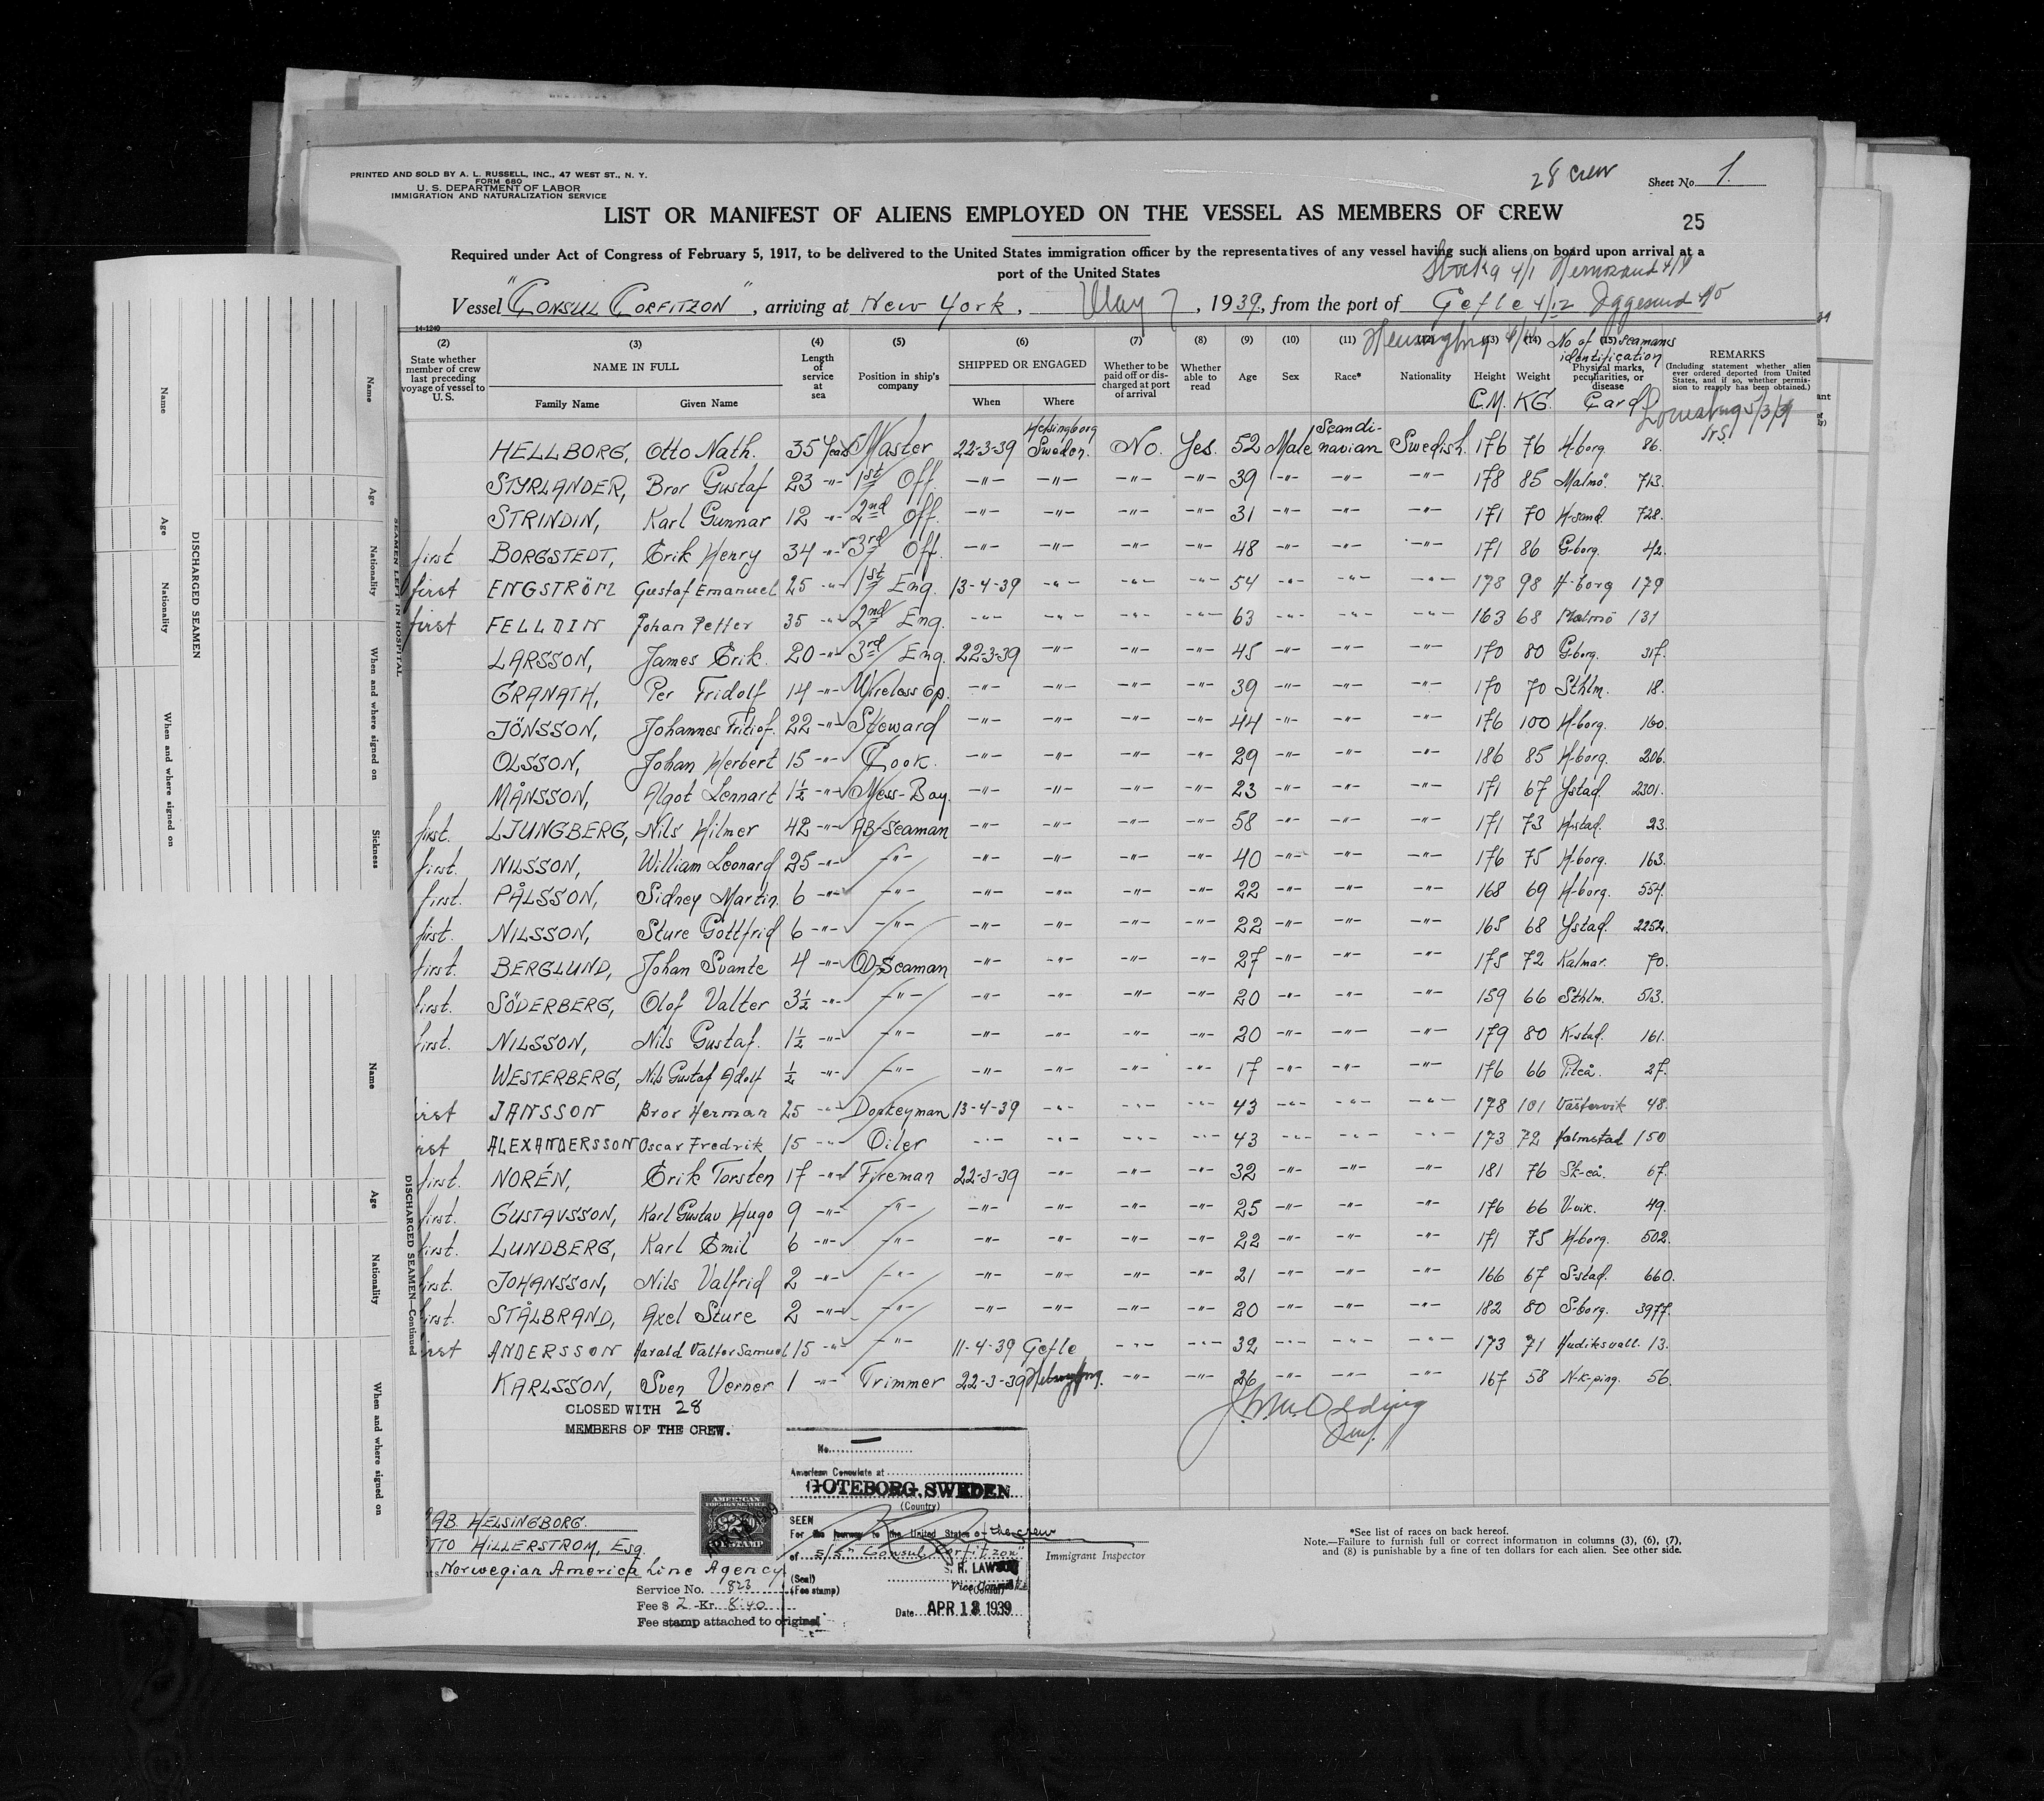 PRINTED AND SOLD BY A. L. RUSSELL, INC., 47 WEST ST., N. Y.
FORM 680
U. S. DEPARTMENT OF LABOR
IMMIGRATION AND NATURALIZATION SERVICE
28 crew
Sheet No. 1.
LIST OR MANIFEST OF ALIENS EMPLOYED ON THE VESSEL AS MEMBERS OF CREW
25
Required under Act of Congress of February 5, 1917, to be delivered to the United States immigration officer by the representatives of any vessel having such aliens on board upon arrival at a
port of the United States
Vessel "CONSUL CORFITZON", arriving at New York, May 7, 1939, from the port of Gefle 4/12 Iggesund
14-1240
(2) State whether member of crew last preceding voyage of vessel to U.S.
(3) NAME IN FULL Family Name Given Name
(4) Length of service at sea
(5) Position in ship's company
(6) SHIPPED OR ENGAGED When Where
(7) Whether to be paid off or discharged at port of arrival
(8) Whether able to read
(9) Age
(10) Sex
(11) Race*
Nationality
(13) Height C.M.
(14) Weight KG.
No of seamans identification Card
(15) Physical marks, peculiarities, or disease
REMARKS (Including statement whether alien ever ordered deported from United States, and if so, whether permission to reapply has been obtained.)
HELLBORG, Otto Nath. 35 Years Master 22-3-39 Helsingborg Sweden. No. Yes. 52 Male Scandinavian Swedish. 176 76 H-borg 86.
STYRLANDER, Bror Gustaf 23 -"- 1st Off. -"- -"- -"- -"- 39 -"- -"- -"- 178 85 Malmö. 713.
STRINDIN, Karl Gunnar 12 -"- 2nd Off. -"- -"- -"- -"- 31 -"- -"- -"- 171 70 H-sand. 728.
first BORGSTEDT, Erik Henry 34 -"- 3rd Off. -"- -"- -"- -"- 48 -"- -"- -"- 171 86 G-borg. 42.
first ENGSTRÖM Gustaf Emanuel 25 -"- 1st Eng. 13-4-39 -"- -"- -"- 54 -"- -"- -"- 178 98 H-borg 179
first FELLDIN Johan Petter 35 -"- 2nd Eng. -"- -"- -"- -"- 63 -"- -"- -"- 163 68 Malmö 131
LARSSON, James Erik. 20 -"- 3rd Eng. 22-3-39 -"- -"- -"- 45 -"- -"- -"- 170 80 G-borg. 317.
GRANATH, Per Fridolf 14 -"- Wireless op. -"- -"- -"- -"- 39 -"- -"- -"- 170 70 Sthlm. 18.
JÖNSSON, Johannes Fritiof. 22 -"- Steward -"- -"- -"- -"- 44 -"- -"- -"- 176 100 H-borg. 160.
OLSSON, Johan Herbert 15 -"- Cook. -"- -"- -"- -"- 29 -"- -"- -"- 186 85 H-borg. 206.
MÅNSSON, Algot Lennart 1½ -"- Mess-Boy. -"- -"- -"- -"- 23 -"- -"- -"- 171 67 Ystad. 2301.
first. LJUNGBERG, Nils Hilmer 42 -"- AB-Seaman -"- -"- -"- -"- 58 -"- -"- -"- 171 73 H-stad. 23.
first. NILSSON, William Leonard 25 -"- -"- -"- -"- -"- -"- 40 -"- -"- -"- 176 75 H-borg. 163.
first. PÅLSSON, Sidney Martin. 6 -"- -"- -"- -"- -"- -"- 22 -"- -"- -"- 168 69 H-borg. 554.
first. NILSSON, Sture Gottfrid 6 -"- -"- -"- -"- -"- -"- 22 -"- -"- -"- 165 68 Ystad. 2252.
first. BERGLUND, Johan Svante 4 -"- OD-Seaman -"- -"- -"- -"- 27 -"- -"- -"- 175 72 Kalmar. 70.
first. SÖDERBERG, Olof Valter 3½ -"- -"- -"- -"- -"- -"- 20 -"- -"- -"- 159 66 Sthlm. 513.
first. NILSSON, Nils Gustaf. 1½ -"- -"- -"- -"- -"- -"- 20 -"- -"- -"- 179 80 K-stad. 161.
WESTERBERG, Nils Gustaf Adolf ½ -"- -"- -"- -"- -"- -"- 17 -"- -"- -"- 176 66 Piteå. 27.
irst JANSSON Bror Herman 25 -"- Donkeyman 13-4-39 -"- -"- -"- 43 -"- -"- -"- 178 101 Västervik 48.
irst ALEXANDERSSON Oscar Fredrik 15 -"- Oiler -"- -"- -"- -"- 43 -"- -"- -"- 173 72 Halmstad 150
first. NORÉN, Erik Torsten 17 -"- Fireman 22-3-39 -"- -"- -"- 32 -"- -"- -"- 181 76 Sk-eå. 67.
first. GUSTAVSSON, Karl Gustav Hugo 9 -"- -"- -"- -"- -"- -"- 25 -"- -"- -"- 176 66 V-vik. 49.
first. LUNDBERG, Karl Emil 6 -"- -"- -"- -"- -"- -"- 22 -"- -"- -"- 171 75 H-borg. 502.
first. JOHANSSON, Nils Valfrid 2 -"- -"- -"- -"- -"- -"- 21 -"- -"- -"- 166 67 S-stad. 660.
first. STÅLBRAND, Axel Sture 2 -"- -"- -"- -"- -"- -"- 20 -"- -"- -"- 182 80 S-borg. 3977.
irst ANDERSSON Harald Valter Samuel 15 -"- -"- 11-4-39 Gefle -"- -"- 32 -"- -"- -"- 173 71 Hudiksvall. 13.
KARLSSON, Sven Verner 1 -"- Trimmer 22-3-39 -"- -"- 26 -"- -"- -"- 167 58 N-k-ping. 56.
CLOSED WITH 28
MEMBERS OF THE CREW.
No.
American Consulate at
GOTEBORG, SWEDEN
(Country)
SEEN
For the journey to the United States of the crew
of S/S "Consul Corfitzon"
(Seal)
(Fee stamp)
S. R. LAWSON
Vice Consul
(Consul)
Date APR 13 1939
Immigrant Inspector
AMERICAN
FOREIGN SERVICE
AB. HELSINGBORG.
OTTO HILLERSTROM, Esq.
Norwegian America Line Agency
Service No. 823
Fee $ 2 -Kr. 8.40
Fee stamp attached to original
*See list of races on back hereof.
Note.—Failure to furnish full or correct information in columns (3), (6), (7),
and (8) is punishable by a fine of ten dollars for each alien. See other side.
DISCHARGED SEAMEN
Name
Age
Nationality
When and where signed on
SEAMEN LEFT IN HOSPITAL
Name
Age
Nationality
When and where signed on
Sickness
DISCHARGED SEAMEN—Continued
Name
Age
Nationality
When and where signed on